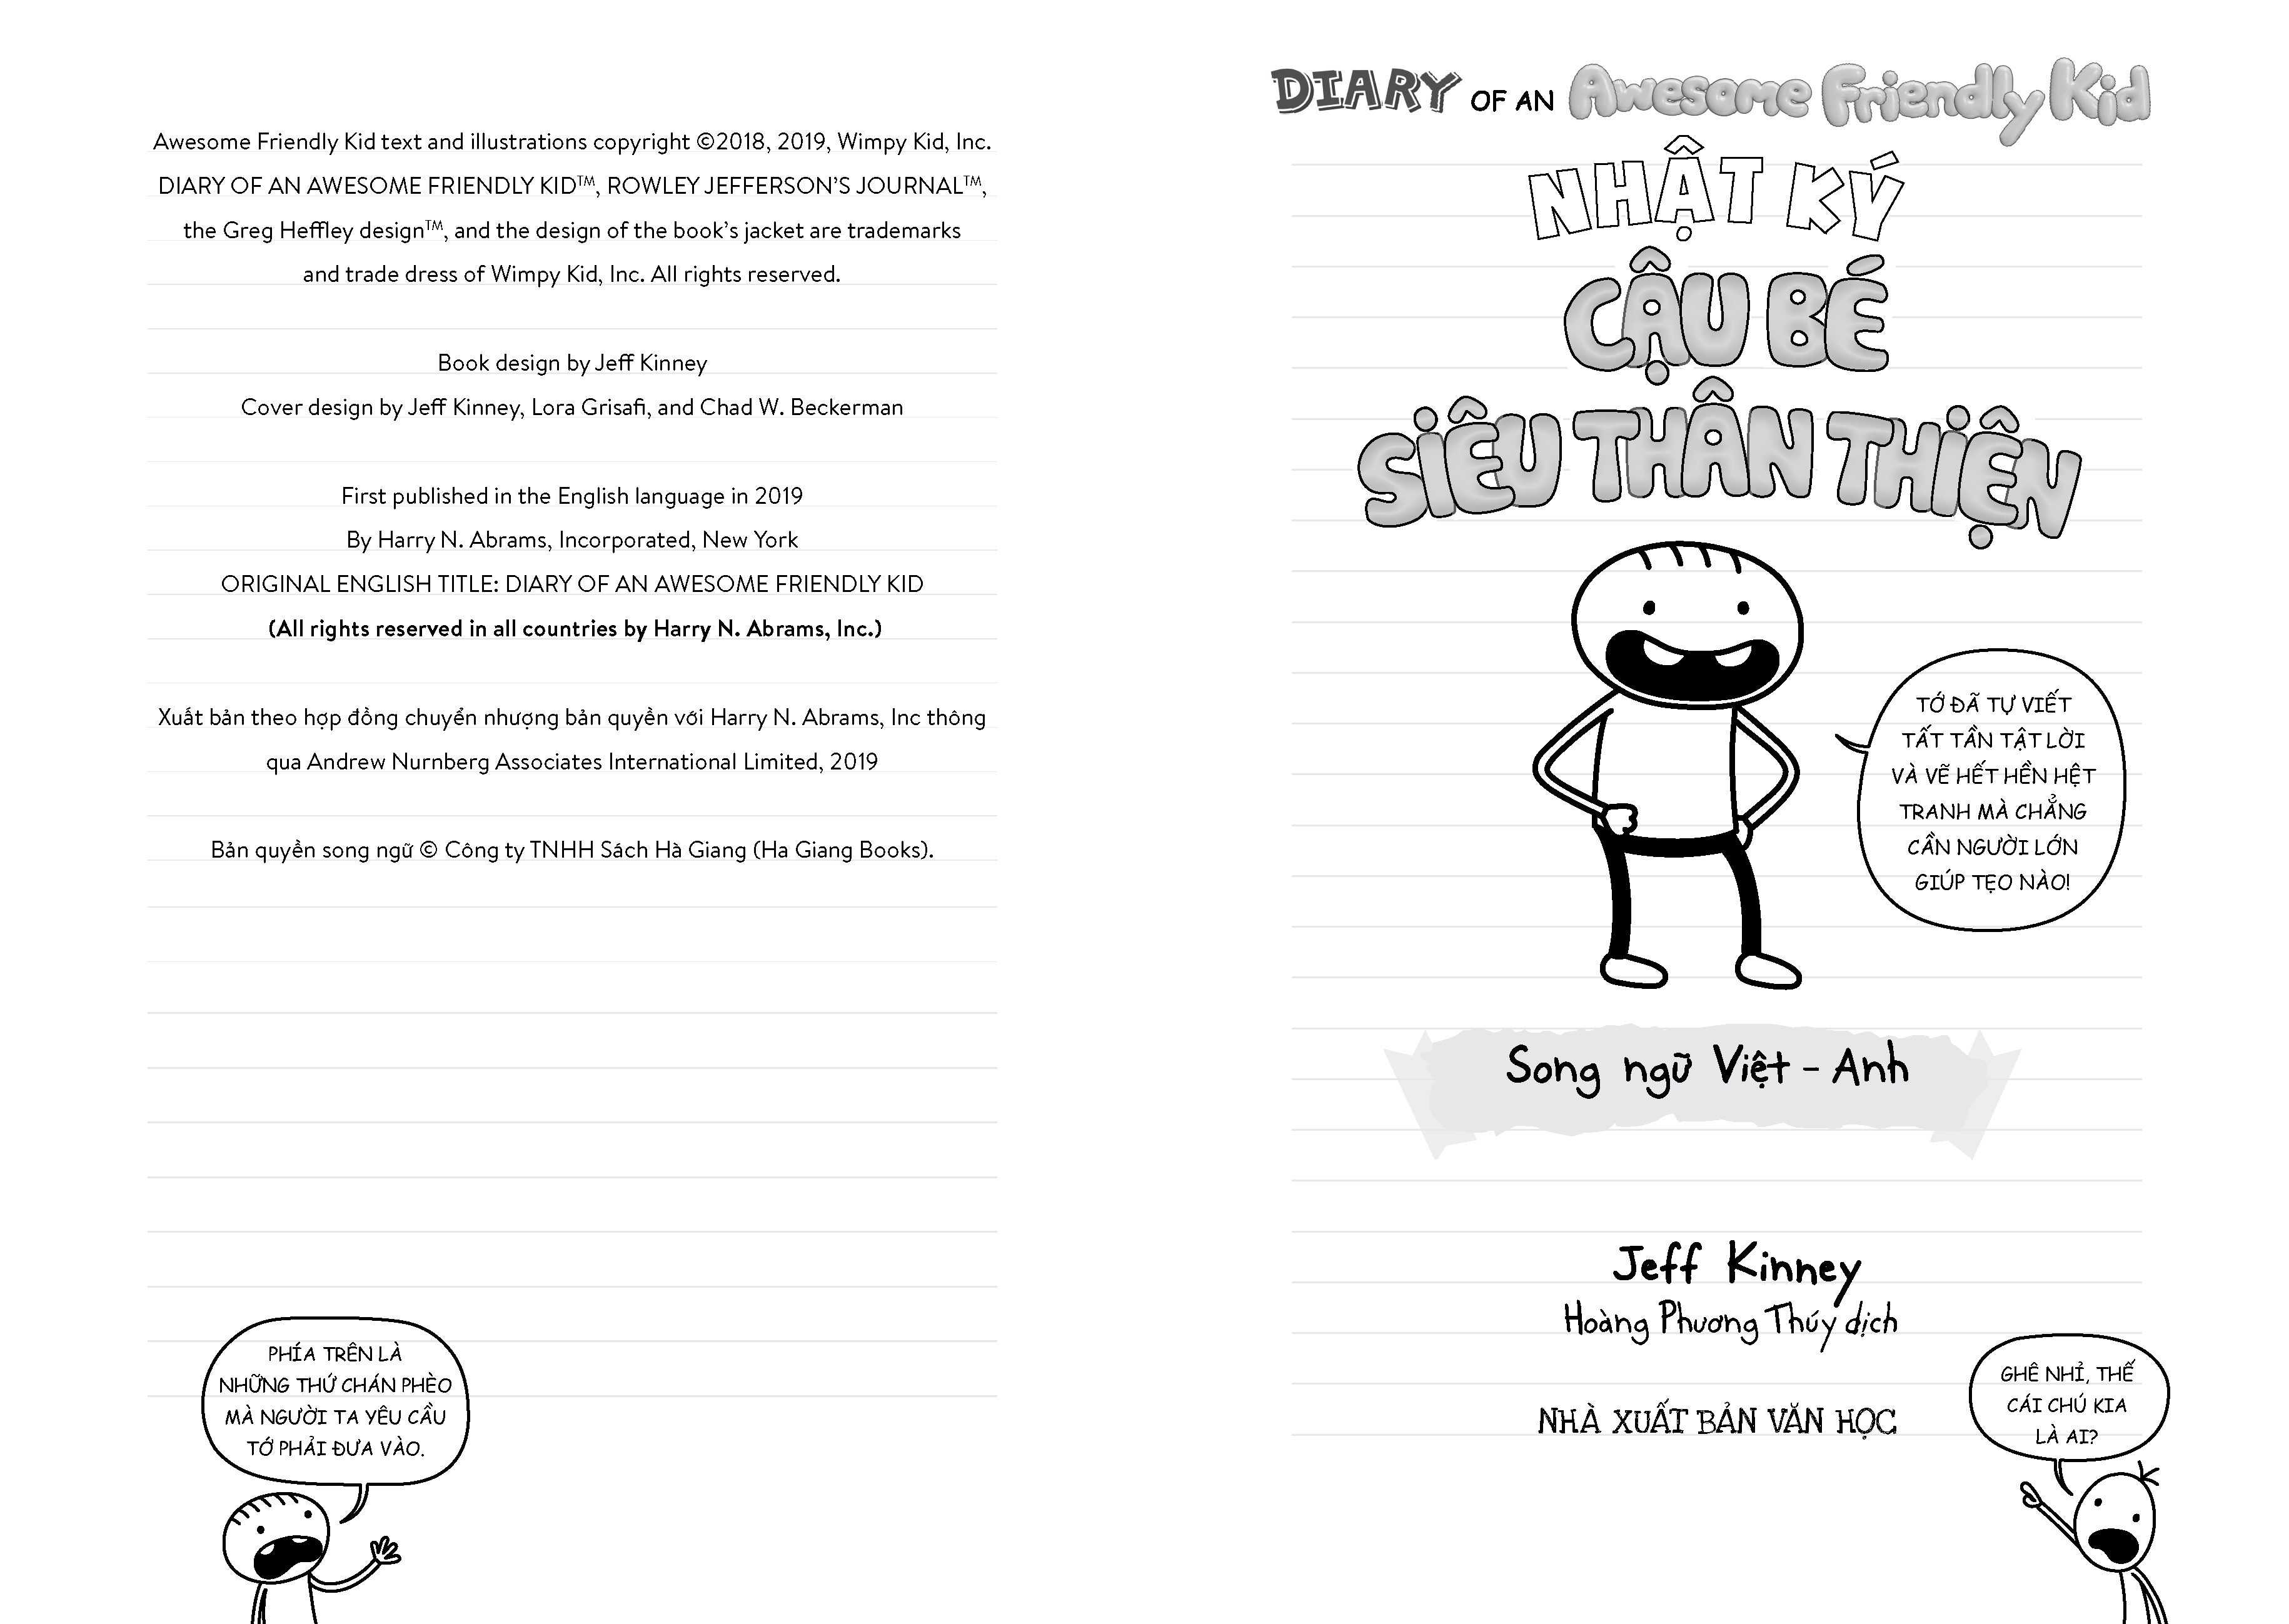 Awesome Friendly Kid text and illustrations copyright ©2018, 2019, Wimpy Kid, Inc.
DIARY OF AN AWESOME FRIENDLY KID™, ROWLEY JEFFERSON’S JOURNAL™,
the Greg Heffley design™, and the design of the book’s jacket are trademarks
and trade dress of Wimpy Kid, Inc. All rights reserved.
Book design by Jeff Kinney
Cover design by Jeff Kinney, Lora Grisafi, and Chad W. Beckerman
First published in the English language in 2019
By Harry N. Abrams, Incorporated, New York
ORIGINAL ENGLISH TITLE: DIARY OF AN AWESOME FRIENDLY KID
(All rights reserved in all countries by Harry N. Abrams, Inc.)
Xuất bản theo hợp đồng chuyển nhượng bản quyền với Harry N. Abrams, Inc thông
qua Andrew Nurnberg Associates International Limited, 2019
Bản quyền song ngữ © Công ty TNHH Sách Hà Giang (Ha Giang Books).
PHÍA TRÊN LÀ
NHỮNG THỨ CHÁN PHÈO
MÀ NGƯỜI TA YÊU CẦU
TỚ PHẢI ĐƯA VÀO.
DIARY OF AN Awesome Friendly Kid
NHẬT KÝ
CẬU BÉ
SIÊU THÂN THIỆN
TỚ ĐÃ TỰ VIẾT
TẤT TẦN TẬT LỜI
VÀ VẼ HẾT HỀN HỆT
TRANH MÀ CHẲNG
CẦN NGƯỜI LỚN
GIÚP TẸO NÀO!
Song ngữ Việt - Anh
Jeff Kinney
Hoàng Phương Thúy dịch
NHÀ XUẤT BẢN VĂN HỌC
GHÊ NHỈ, THẾ
CÁI CHÚ KIA
LÀ AI?